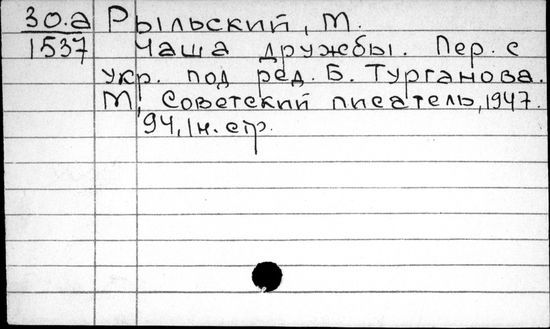 30.а Рыльский, М.
1537 Чаша дружбы. Пер. с
укр. под ред. Б. Турганова.
М, Советский писатель, 1947.
94, 1н. стр.